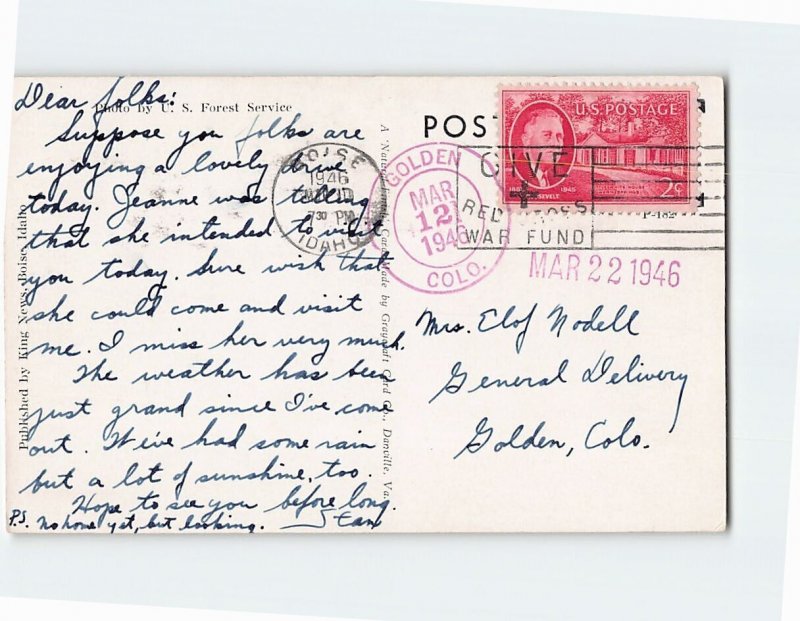 Dear folks:
Photo by U. S. Forest Service
Suppose you folks are
enjoying a lovely drive
today. Jeanne was telling
that she intended to visit
you today. Sure wish that
she could come and visit
me. I miss her very much.
The weather has been
just grand since I've come
out. We've had some rain
but a lot of sunshine, too.
Hope to see you before long.
P.S. No home yet, but looking.
Published by King News, Boise, Idaho
Card Made by Graycraft Card Co., Danville, Va.
POST
BOISE
1946
7 30 PM
IDAHO
GOLDEN
MAR
12
1946
COLO.
GIVE
RED
WAR FUND
U.S. POSTAGE
1945
2¢
MAR 22 1946
Mrs. Elof Nodell
General Delivery
Golden, Colo.